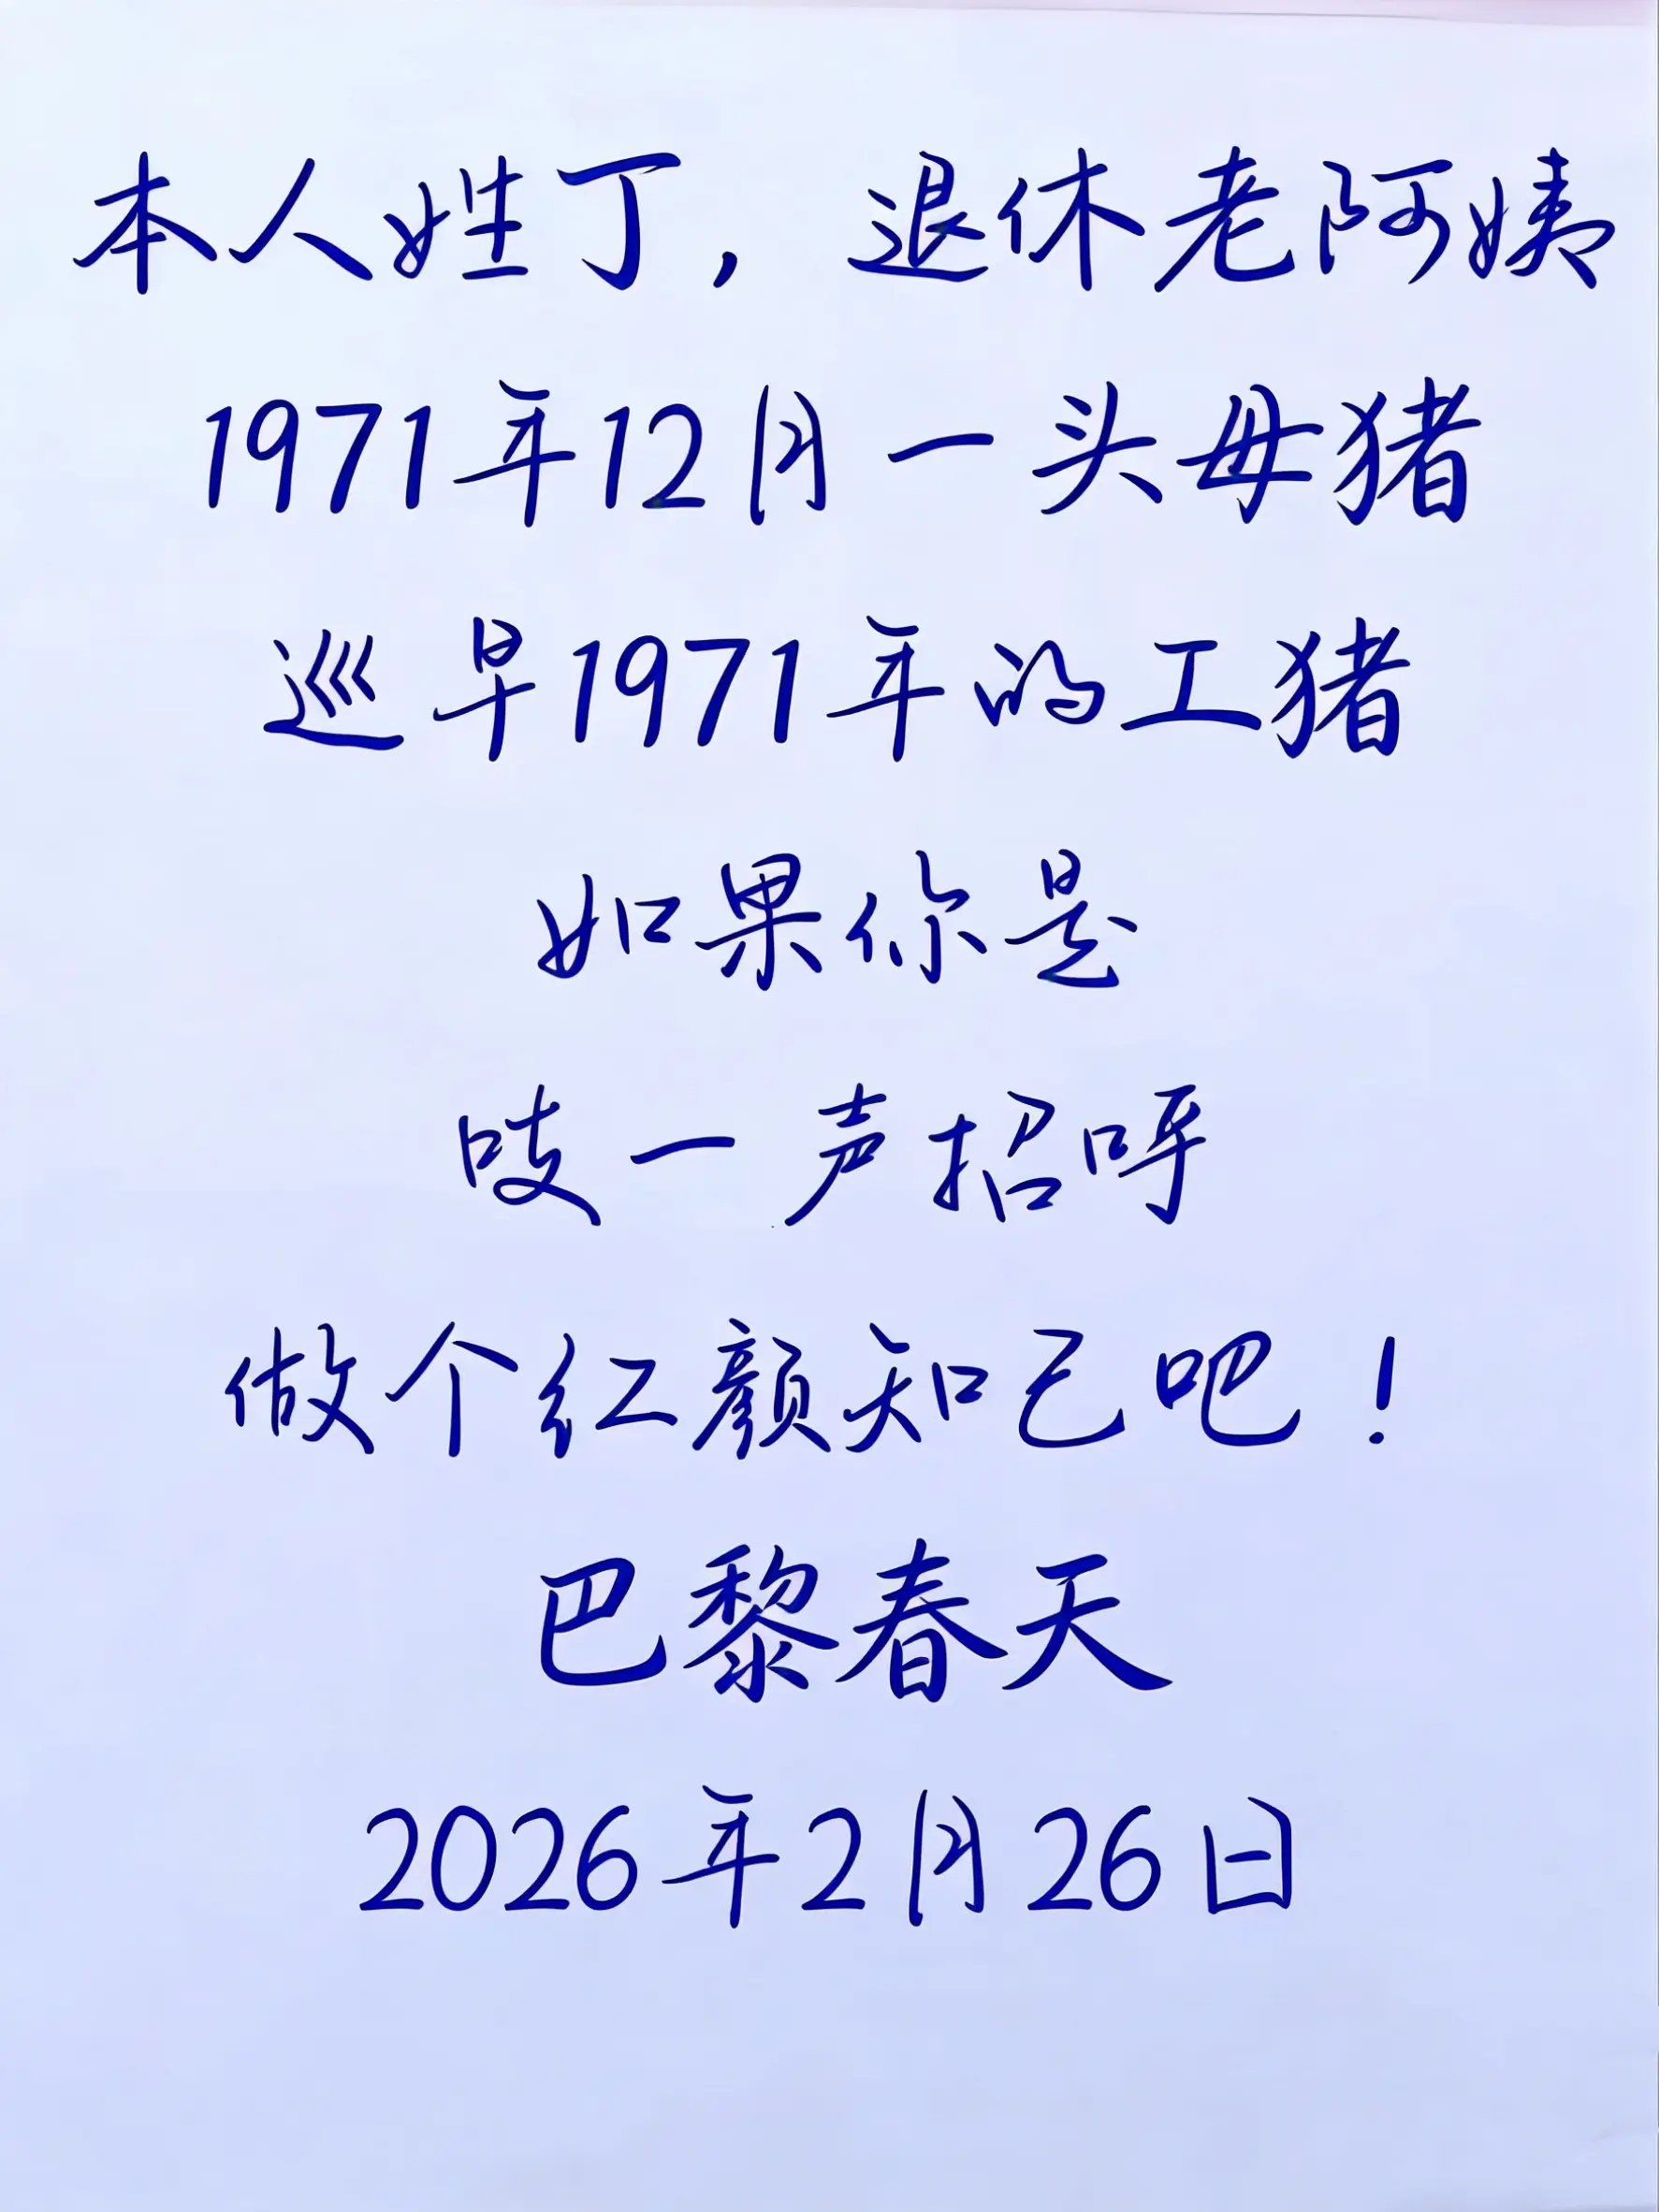 本人姓丁，退休老阿姨
1971年12月一头母猪
巡早1971年的工猪
如果你是
吱一声招呼
做个红颜知己吧！
巴黎春天
2026年2月26日